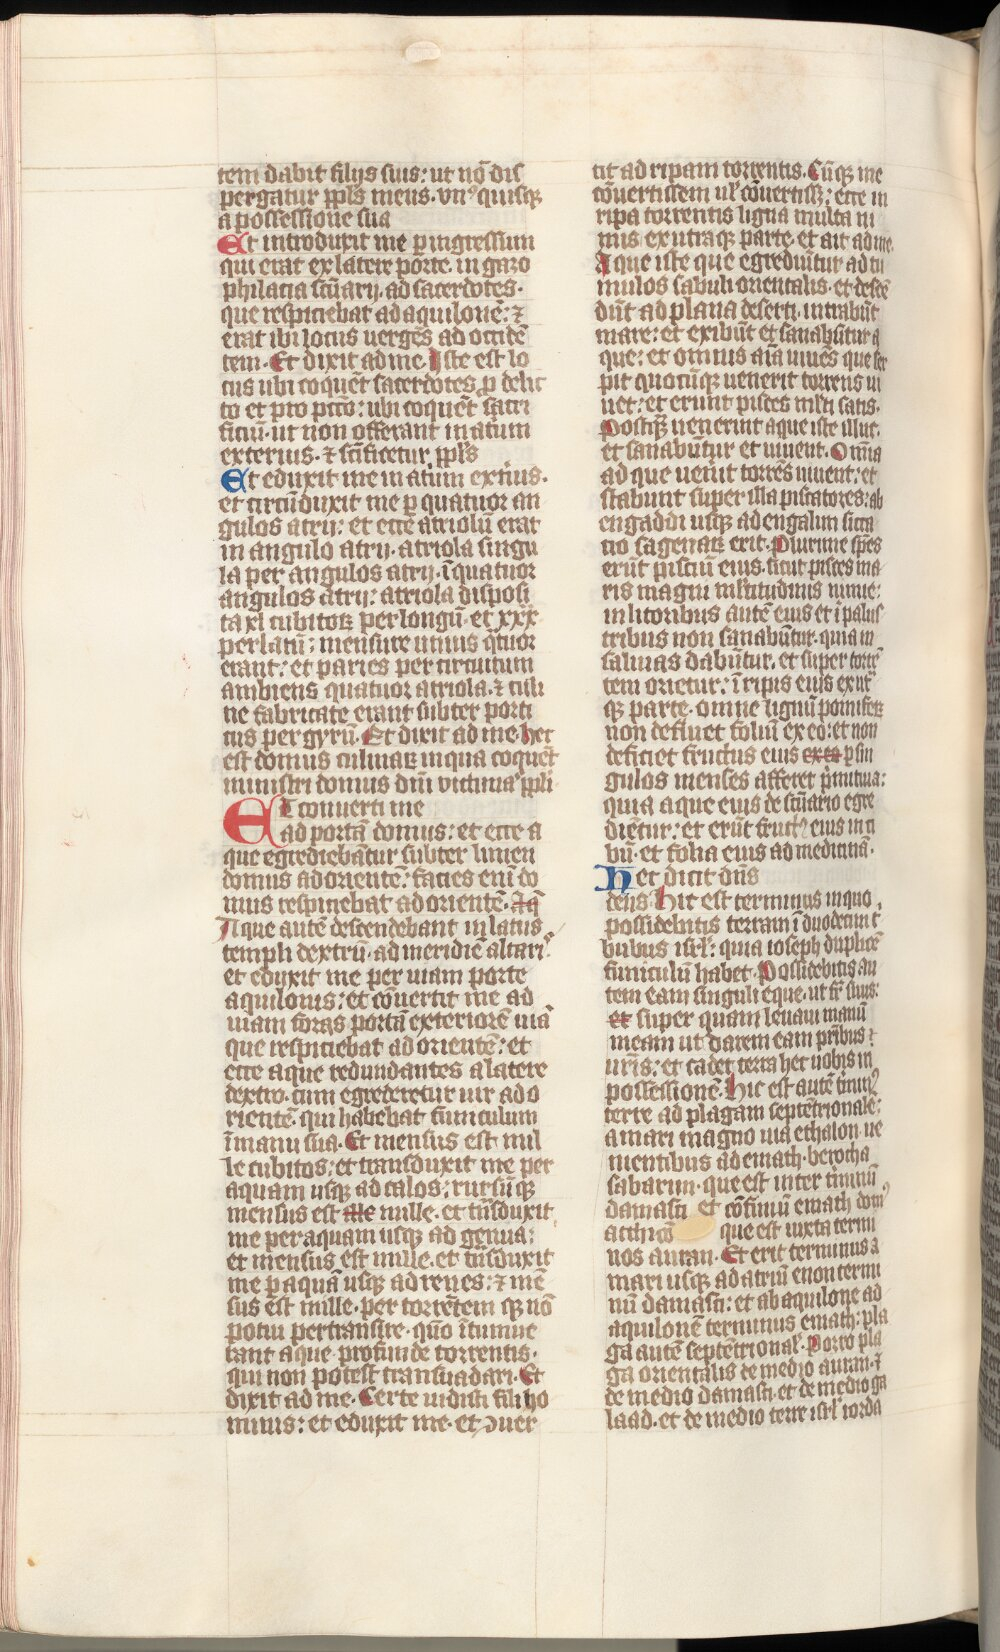 tem dabit filijs suis: ut nō dis
pergatur ppls meus. vnꝰquisqꝫ
a possessione sua
Et introduxit me ꝑ ingressum
qui erat ex latere porte. in gazo
philatia scūarij. ad sacerdotes.
que respiciebat ad aquilonē: ⁊
erat ibi locus uergēs ad occidē
tem. Et dixit ad me. Iste est lo
cus ubi coquēt sacerdotes ꝓ delic
to et pro pctō: ubi coquēt sacri
ficiū. ut non offerant in atrium
exterius. ⁊ scīficetur ppls
Et eduxit me in atrium exrius.
et circūduxit me ꝑ quatuor an
gulos atrij: et ecce atriolū erat
in angulo atrij. atriola singu
la per angulos atrij. ī quatuor
angulos atrij: atriola disposi
ta xl cubitoꝝ per longū. et xxx
per latū: mensure unius qtuor
erant: et paries per circuitum
ambiens quatuor atriola. ⁊ culi
ne fabricate erant subter porti
cus per gyrū. Et dixit ad me. hec
est domus culinaꝝ in qua coquēt
ministri domus dnī victima ppli
Et conuerti me
ad portā domus: et ecce a
que egrediebantur subter limen
domus ad orientē: facies eni do
mus respiciebat ad orientē. Aq
Aque autē descendebant in latus
templi dextrū. ad meridiē altarꝭ.
et eduxit me per uiam porte
aquilonis: et cōuertit me ad
uiam foras portā exteriorē uiā
que respiciebat ad orientē: et
ecce aque redundantes a latere
dextro. cum egrederetur uir ad o
rientē. qui habebat funiculum
ī manu sua. Et mensus est mil
le cubitos: et transduxit me per
aquam usqꝫ ad talos: rursūqꝫ
mensus est me mille. et trāsduxit
me per aquam usqꝫ ad genua:
et mensus est mille. et trāsduxit
me ꝑ aquā usqꝫ ad renes: ⁊ mē
sus est mille. per torrētem qꝫ nō
potui pertransire. qūo ītumue
rant aque profunde torrentis.
qui non potest transuadari. Et
dixit ad me. Certe uidisti fili ho
minis: et eduxit me. et ꝯuer
tit ad ripam torrentis. Cūqꝫ me
cōuertissem ul cōuertissꝫ: ecce in
ripa torrentis ligna multa ni
mis ex utraqꝫ parte. et ait ad me.
Aque iste que egrediūtur ad tu
mulos sabuli orientalis. et descē
dūt ad plana deserti. intrabūt
mare: et exibūt et sanabūtur a
que: et omnis aīa uiuēs que ser
pit quocūqꝫ uenerit torrens ui
uet: et erunt pisces mlti satis.
Postqꝫ uenerint aque iste illuc.
et sanabūtur et uiuent. Omīa
ad que uerit torrēs uiuent: et
stabunt super illa piscatores: ab
engaddi usqꝫ ad engalim sicca
tio sagenaꝝ erit. Plurime spēs
erūt pisciū eius. sicut pisces ma
ris magni mltitudinis nimie:
in litoribus autē eius et ī palus
tribus non sanabūtur. quia in
salinas dabūtur. et super torrē
tem orietur: ī ripis eius ex utr
qꝫ parte. omne lignū pomiferꝝ
non defluet foliū ex eo: et non
deficiet fructus eius ꝑ sin
gulos menses afferet pmitiua:
quia aque eius de scūario egre
diētur: et erūt fructꝰ eius in ci
bū. et folia eius ad medicinā.
Hec dicit dns
deus. hic est terminus in quo
possidebitis terram ī duodecim t
bubus isrl: quia ioseph duplicē
funiculū habet. Possidebitis au
tem eam singuli eque. ut fr suus:
et super quam leuaui manū
meam ut darem eam pribus
uris: et cadet terra hec uobis in
possessionē. Hic est autē tminꝰ
terre ad plagam septētrionalē:
a mari magno uia ethalon ue
nientibus ad emath. berotha
sabarim. que est inter timinū
damasci et cōfiniū emath domꝰ
atthicō que est iuxta termi
nos auran. Et erit terminus a
mari usqꝫ ad atriū enon termi
nū damasci: et ab aquilone ad
aquilonē terminus emath: pla
ga autē septētrional. Porro pla
ga orientalis de medio auran. ⁊
de medio damasci. et de medio ga
laad. et de medio terre isrl iorda